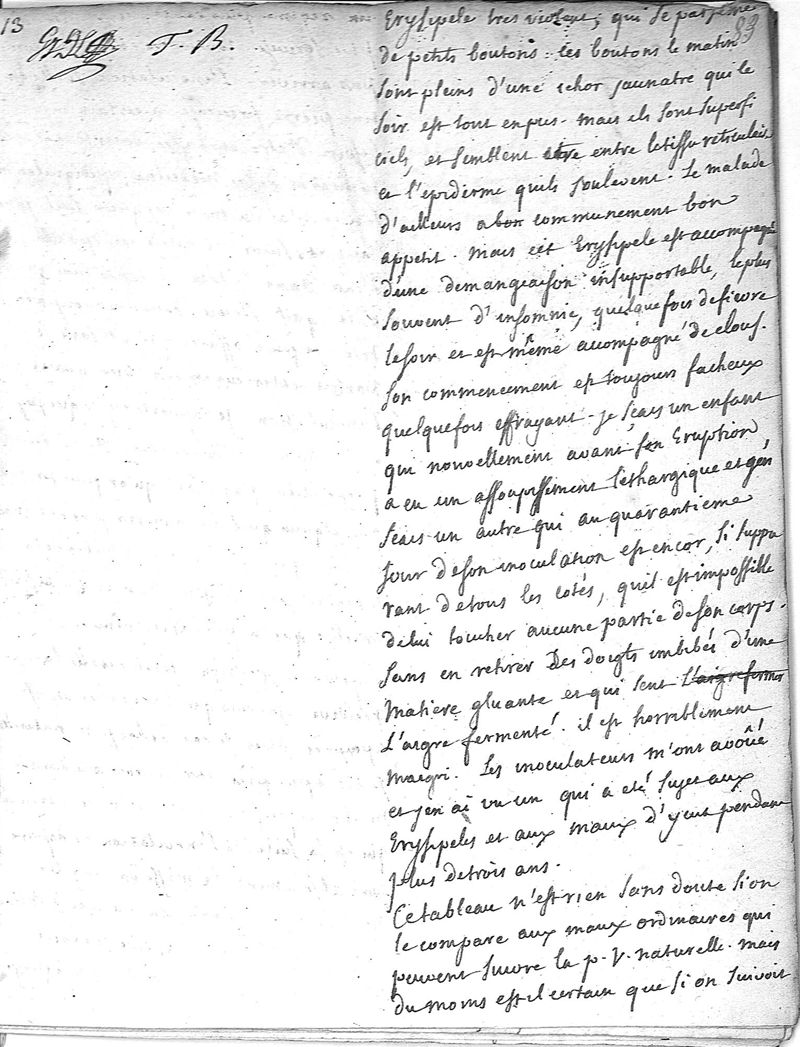 13
T. B.
83
Erysipele tres violent, qui se parseme
de petits boutons. les boutons le matin
sont pleins d'une ichor jaunatre qui le
soir est tout en pus. mais ils sont superfi
ciels, et semblent etre entre le tissu reticulaire
et l'epiderme quils soulevent. Le malade
d'ailleurs a bon communement bon
appetit. mais cet Erysipele est accompagné
d'une demangeaison insupportable, le plus
souvent d'insomnie, quelque fois de fievre
le soir et est même accompagné de clous.
son commencement est toujours facheux
quelquefois effrayant. je sçais un enfant
qui nouvellement avant son Eruption
a eu un assoupissement léthargique et j'en
sçais un autre qui au quarantieme
jour de son inoculation est encor, si suppu
rant de tous les cotés, qu'il est impossible
de lui toucher aucune partie de son corps.
sans en retirer Des doigts imbibés d'une
matiere gluante et qui sent L'aigre fermen
L'aigre fermenté. il est horriblement
maigri. Les inoculateurs m'ont avoüé
et j'en ai vu un qui a eté sujet aux
Erysipeles et aux maux d'yeux pendant
plus de trois ans.
Ce tableau n'est rien sans doute si on
le compare aux maux ordinaires qui
peuvent suivre la p. V. naturelle. mais
du moins est il certain que si on suivoit